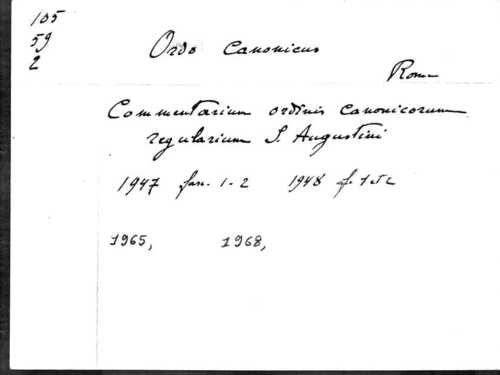 105
59
2
Ordo Canonicus
Roma
Commentarium ordinis canonicorum
regularium S. Augustini
1947 fasc. 1-2 1948 f. 1 et 2
1965, 1968,